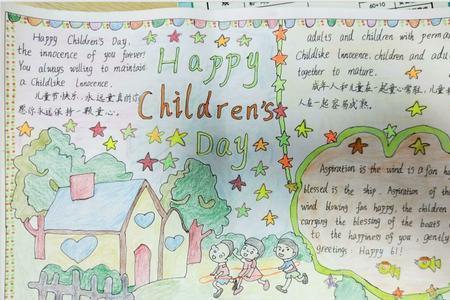 Happy Children's Day,
the innocence of you forever!
You always willing to maintain
a Childlike Innocence.
儿童节快乐,永远童真的你
愿你永远保持一颗童心。
Happy
Children's
Day
adults and children with
Childlike Innocence, children and
together to mature.
成年人和儿童在一起童心常驻,儿童和
人在一起容易成熟。
Aspiration is the wind is a fan
blessed is the ship. Aspiration of the
wind blowing fan happy, the children
carrying the blessing of the boats
to the happiness of you, gently
greetings: Happy 61!
60÷10